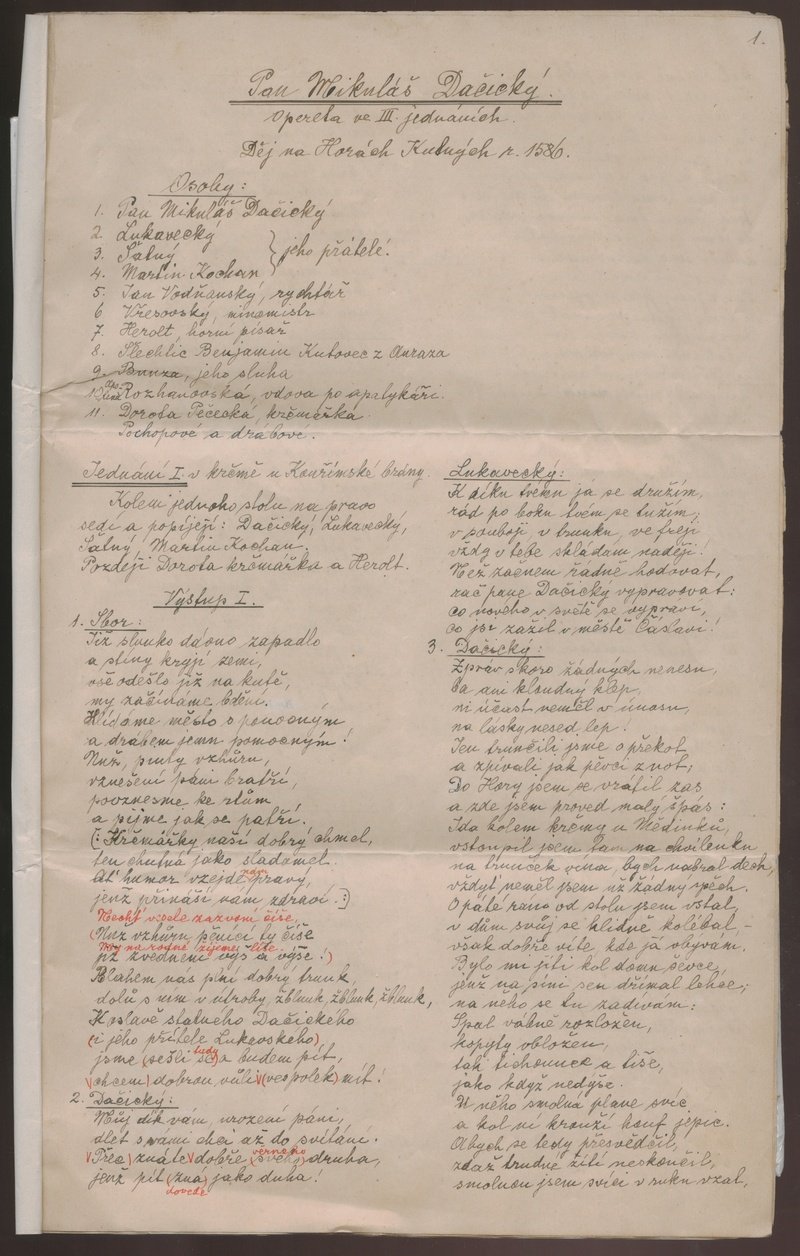 1.
Pan Mikuláš Dačický.
Opereta ve III. jednáních.
Děj na Horách Kutných r. 1586.
Osoby:
1. Pan Mikuláš Dačický
2. Lukavecký
3. Šatný } jeho přátelé.
4. Martin Kochan
5. Jan Vodňanský, rychtář
6 Vřesovský, mincmistr
7. Herolt, horní písař
8. Šlechtic Benjamin Kutovec z Auraza
9. Bunza, jeho sluha
10. Rozhanovská, vdova po apatykáři.
11. Dorota Pěčecká, krčmářka.
Pochopové a drábové.
Jednání I. v krčmě u Kouřimské brány.
Kolem jednoho stolu na pravo
sedí a popíjejí: Dačický, Lukavecký,
Šatný, Martin Kochan.
Později Dorota krčmářka a Herolt.
Výstup I.
1. Sbor:
Již slunko dávno zapadlo
a stíny kryjí zemi,
vše odešlo již na kutě,
my začínáme bdění.
Hlídáme město s ponocným
a drábem jemu pomocným!
Nuž, pruty vzhůru,
vznešení páni bratří,
povznesme ke rtům
a pijme jak se patří.
(: Krčmářky naší dobrý chmel,
ten chutná jako sladomel.
Ať humor vzejde nám pravý,
jenž přináší nám zdraví. :)
Nechť vesele zazvoní číše,
(Nuž vzhůru pěnící ty číše
na rodné žijeme líše.
již zvedneme výš a výše!)
Blahem nás plní dobrý trunk,
dolů s ním v útroby, žblunk, žblunk, žblunk,
K oslavě statného Dačického
(i jeho přítele Lukavského)
jsme (sešli se) tudy a budem pít,
(chcem) dobrou vůli (vespolek) mít!
2. Dačický:
Můj dík vám, urození páni,
dlet s vámi chci až do svítání.
(Přec) znáte dobře (svého) věrného druha,
jenž pít (zná) jako duha!
dovede
Lukavecký:
K díku tvému já se družím,
rád po boku tvém se tužím;
v souboji, v trunku, ve freji
vždy v tebe skládám naději!
Než začnem řádně hodovat,
rač pane Dačický vypravovat:
co nového v světě se vypraví,
co jsi zažil v městě Čáslavi!
3. Dačický:
Zpráv skoro žádných nenesu,
ba ani kloudný klep,
ni účast neměl v únosu,
na lásky nesed lep!
Jen trunčili jsme o překot
a zpívali jak pěvci z not;
Do Hory jsem se vrátil zas
a zde jsem proved malý špás:
Jda kolem krčmy u Mědínků,
vstoupil jsem tam na chvilenku
na trunček vína, bych nabral dech,
vždyť neměl jsem už žádný spěch.
O páté ráno od stolu jsem vstal,
v dům svůj se klidně kolébal, -
však dobře víte, kde já obývám.
Bylo mi jíti kol domu ševce,
jenž na síni sen dřímal lehce;
na něho se tu zadívám:
Spal vábně rozložen,
kopyty obložen,
tak tichounce a tiše,
jako když nedýše.
U něho smolná plane svíc
a kol ní krouží houf jepic.
Abych se tedy přesvědčil,
zdaž trudné žití neskončil,
smolnou jsem svíci v ruku vzal,